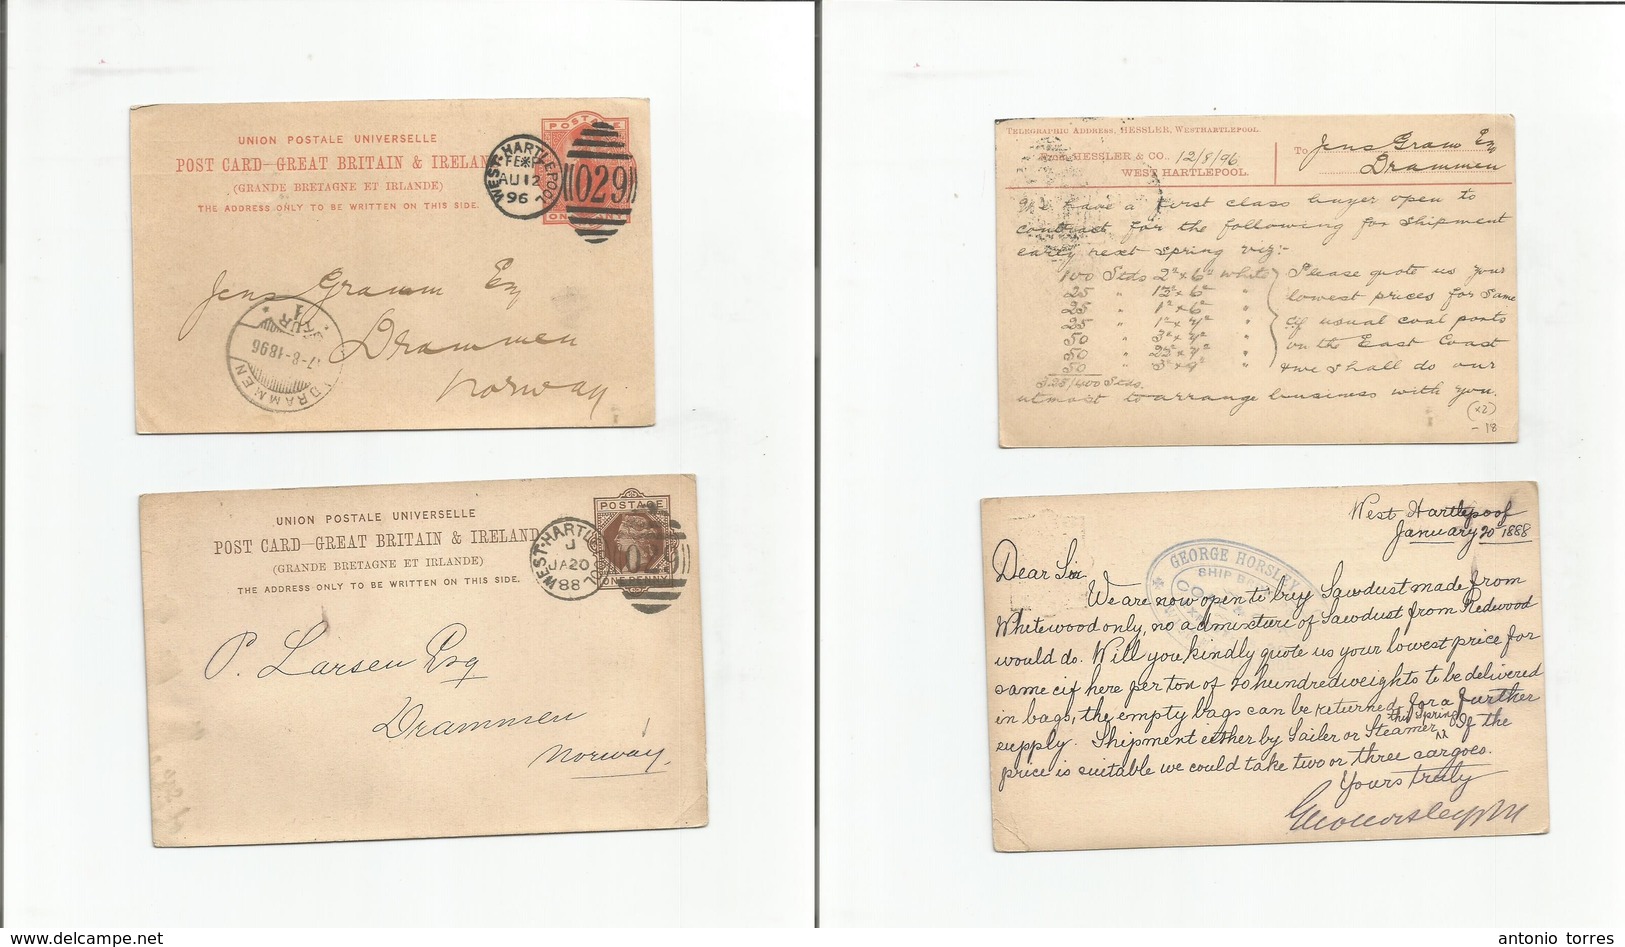 UNION POSTALE UNIVERSELLE
POST CARD–GREAT BRITAIN & IRELAND
(GRANDE BRETAGNE ET IRLANDE)
THE ADDRESS ONLY TO BE WRITTEN ON THIS SIDE.
POSTAGE
WEST-HARTLEPOOL
AU 12
96
029
Jens Gram Esq
Drammen
Norway
DRAMMEN
7-8-1896
TELEGRAPHIC ADDRESS, HESSLER, WESTHARTLEPOOL.
HESSLER & CO., 12/8/96
WEST HARTLEPOOL.
To Jens Gram Esq
Drammen
We have a first class buyer open to
contract for the following for shipment
early next Spring viz:-
100 Stds 2" x 6" white
25 " 1½" x 6" "
25 " 1" x 6" "
25 " 1" x 4½" "
50 "
50 "
50 "
325/400 Stds.
Please quote us your
lowest prices for same
cif usual coal ports
on the East Coast
& we shall do our
utmost to arrange business with you.
(x2)
-18
UNION POSTALE UNIVERSELLE
POST CARD–GREAT BRITAIN & IRELAND
(GRANDE BRETAGNE ET IRLANDE)
THE ADDRESS ONLY TO BE WRITTEN ON THIS SIDE.
POSTAGE
ONE PENNY
WEST-HARTLEPOOL
J
JA 20
88
P. Larsen Esq
Drammen
Norway.
West Hartlepool
January 20 1888
GEORGE HORSLEY
SHIP
Dear Sir
We are now open to buy Sawdust made from
Whitewood only, no admixture of Sawdust from Redwood
would do. Will you kindly quote us your lowest price for
same cif here per ton of 20 hundredweights to be delivered
in bags, the empty bags can be returned for a further
supply. Shipment either by Sailer or Steamer this Spring. If the
price is suitable we could take two or three cargoes.
Yours truly
antonio torres